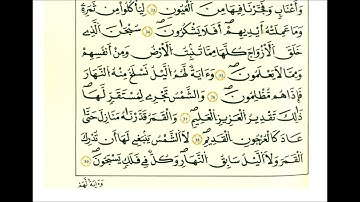 وَأَعْنَٰبٍ وَفَجَّرْنَا فِيهَا مِنَ ٱلْعُيُونِ ٣٤ لِيَأْكُلُوا۟ مِن ثَمَرِهِۦ
وَمَا عَمِلَتْهُ أَيْدِيهِمْ أَفَلَا يَشْكُرُونَ ٣٥ سُبْحَٰنَ ٱلَّذِى
خَلَقَ ٱلْأَزْوَٰجَ كُلَّهَا مِمَّا تُنۢبِتُ ٱلْأَرْضُ وَمِنْ أَنفُسِهِمْ
وَمِمَّا لَا يَعْلَمُونَ ٣٦ وَءَايَةٌ لَّهُمُ ٱلَّيْلُ نَسْلَخُ مِنْهُ ٱلنَّهَارَ
فَإِذَا هُم مُّظْلِمُونَ ٣٧ وَٱلشَّمْسُ تَجْرِى لِمُسْتَقَرٍّ لَّهَا
ذَٰلِكَ تَقْدِيرُ ٱلْعَزِيزِ ٱلْعَلِيمِ ٣٨ وَٱلْقَمَرَ قَدَّرْنَٰهُ مَنَازِلَ حَتَّىٰ
عَادَ كَٱلْعُرْجُونِ ٱلْقَدِيمِ ٣٩ لَا ٱلشَّمْسُ يَنۢبَغِى لَهَآ أَن تُدْرِكَ
ٱلْقَمَرَ وَلَا ٱلَّيْلُ سَابِقُ ٱلنَّهَارِ وَكُلٌّ فِى فَلَكٍ يَسْبَحُونَ ٤٠
وَءَايَةٌ لَّهُمْ